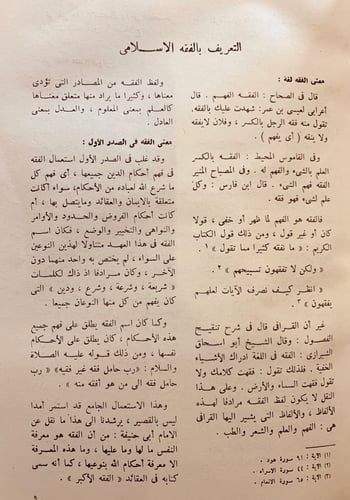 التعريف بالفقه الاسلامى
معنى الفقه لغة :
قال فى الصحاح : الفقه الفهم . قال
أعرابى لعيسى بن عمر: شهدت عليك بالفقه.
تقول منه فقه الرجل بالكسر ، وفلان لايفقه
ولا ينقه ( أى يفهم ) .
وفى القاموس المحيط : الفقه بالكسر
العلم بالشىء والفهم له . وفى المصباح المنير
الفقه فهم الشىء . قال ابن فارس : وكل
علم لشىء فهو فقه .
فالفقه هو الفهم لما ظهر أو خفى ، قولا
كان أو غير قول ، ومن ذلك قول الكتاب
الكريم : « ما نفقه كثيرا مما تقول » ١ .
« ولكن لا تفقهون تسبيحهم » ٢ .
« انظر كيف نصرف الآيات لعلهم
يفقهون » ٣ .
غير أن القرافى قال فى شرح تنقيح
الفصول : وقال الشيخ أبو اسحاق
الشيرازى : الفقه فى اللغة ادراك الأشياء
الخفية . فلذلك تقول : فقهت كلامك ولا
تقول فقهت السماء والأرض . وعلى هذا
النقل لا يكون لفظ الفقه مرادفا لهذه
الألفاظ ، والألفاظ التى يشير اليها القرافى
هى : الفهم والعلم والشعر والطب .
(١) الآية : ٩١ سورة هود .
(٢) الآية : ٤٤ سورة الاسراء .
(٣) الآية : ٦٥ سورة الأنعام .
ولفظ الفقه من المصادر التى تؤدى
معناها ، وكثيرا ما يراد منها متعلق معناها
كالعلم بمعنى المعلوم ، والعدل بمعنى
العادل .
معنى الفقه فى الصدر الأول :
وقد غلب فى الصدر الأول استعمال الفقه
فى فهم أحكام الدين جميعها ، أى فهم كل
ما شرع الله لعباده من الأحكام، سواء أكانت
متعلقة بالايمان والعقائد وما يتصل بها ، أم
كانت أحكام الفروض والحدود والأوامر
والنواهى والتخيير والوضع ، فكان اسم
الفقه فى هذا العهد متناولا لهذين النوعين
على السواء ، لم يختص به واحد منهما دون
الآخر ، وكان مرادفا اذ ذاك لكلمات
« شريعة ، وشرعة ، وشرع ، ودين » التى
كان يفهم من كل منها النوعان جميعا .
وكما كان اسم الفقه يطلق على فهم جميع
هذه الأحكام ، كان يطلق على الأحكام
نفسها ، ومن ذلك قوله عليه الصلاة
والسلام : «رب حامل فقه غير فقيه» «رب
حامل فقه الى من هو أفقه منه » .
وهذا الاستعمال الجامع قد استمر أمدا
ليس بالقصير، يرشدنا الى هذا ما نقل عن
الامام أبى حنيفة : من أن الفقه هو معرفة
النفس ما لها وما عليها ، وما هذه المعرفة
الا معرفة أحكام الله بنوعيها ، كما أنه سمى
كتابه فى العقائد « الفقه الأكبر » .
٩